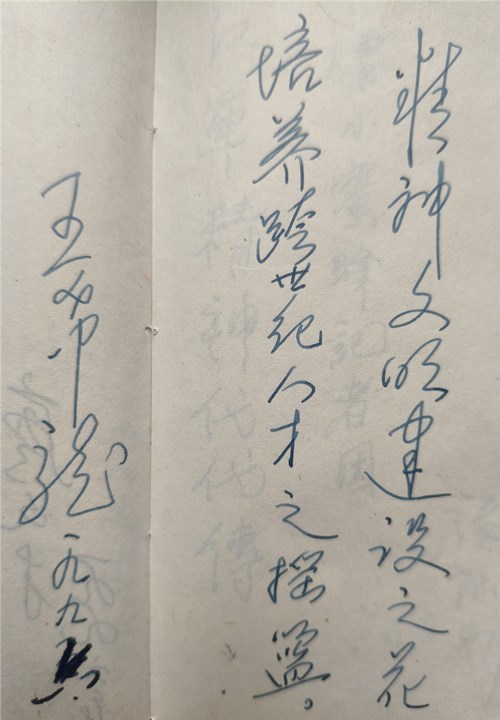 精神文明建设之花
培养跨世纪人才之摇篮。
王希龍 一九九